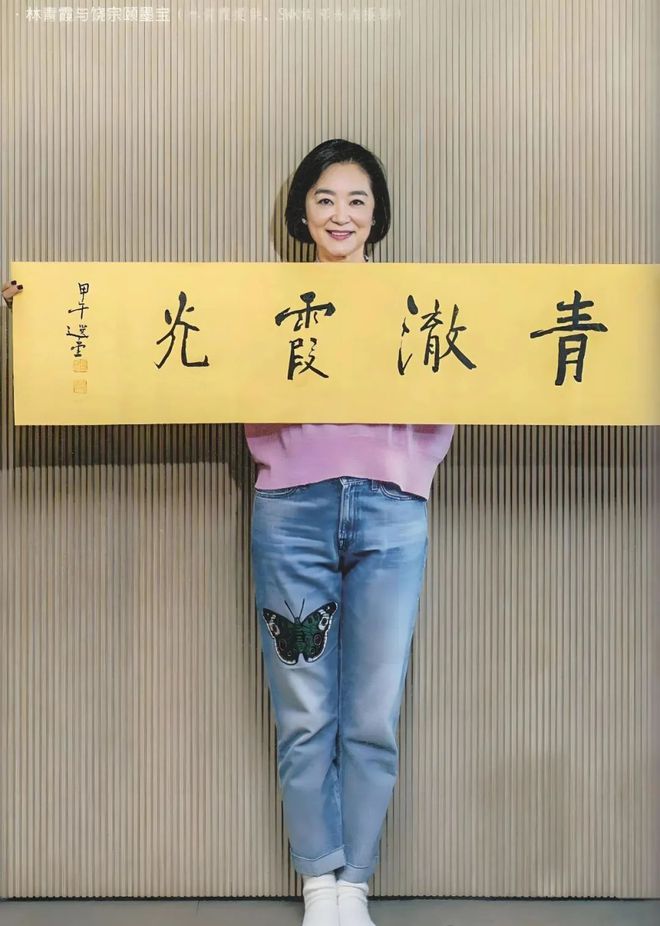 ·林青霞与饶宗颐墨宝
青澈霞光
甲午 选堂